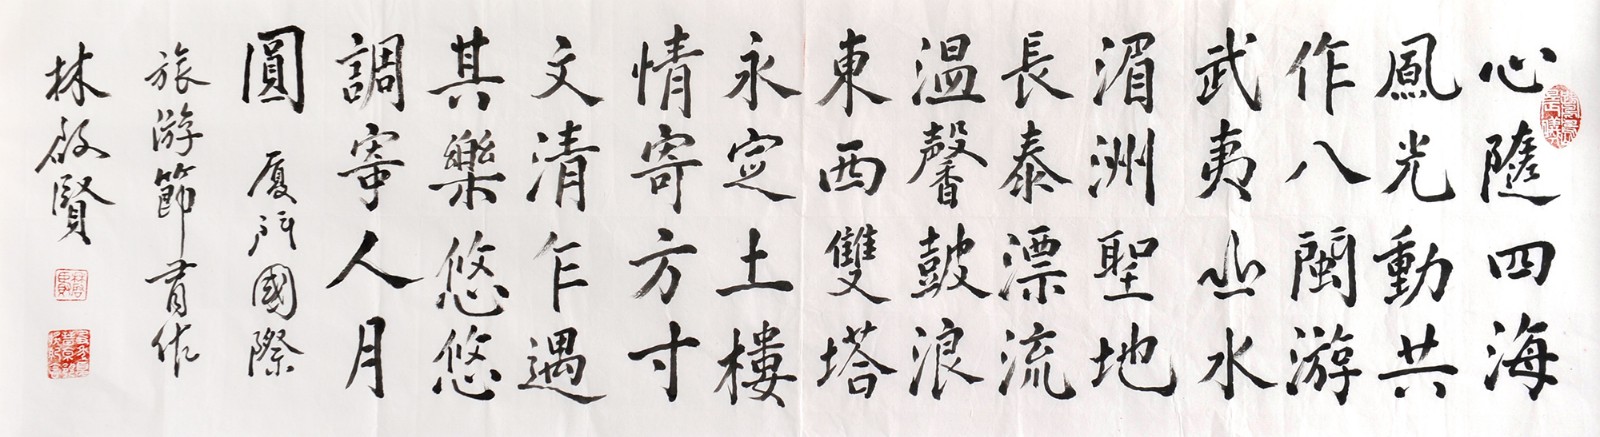 心隨四海
鳳光動共
作八閩游
武夷山水
湄洲聖地
長泰漂流
溫馨鼓浪
東西雙塔
永定土樓
情寄方寸
文清乍遇
其樂悠悠
調寄人月
圓 厦門國際
旅游節有作
林啟賢